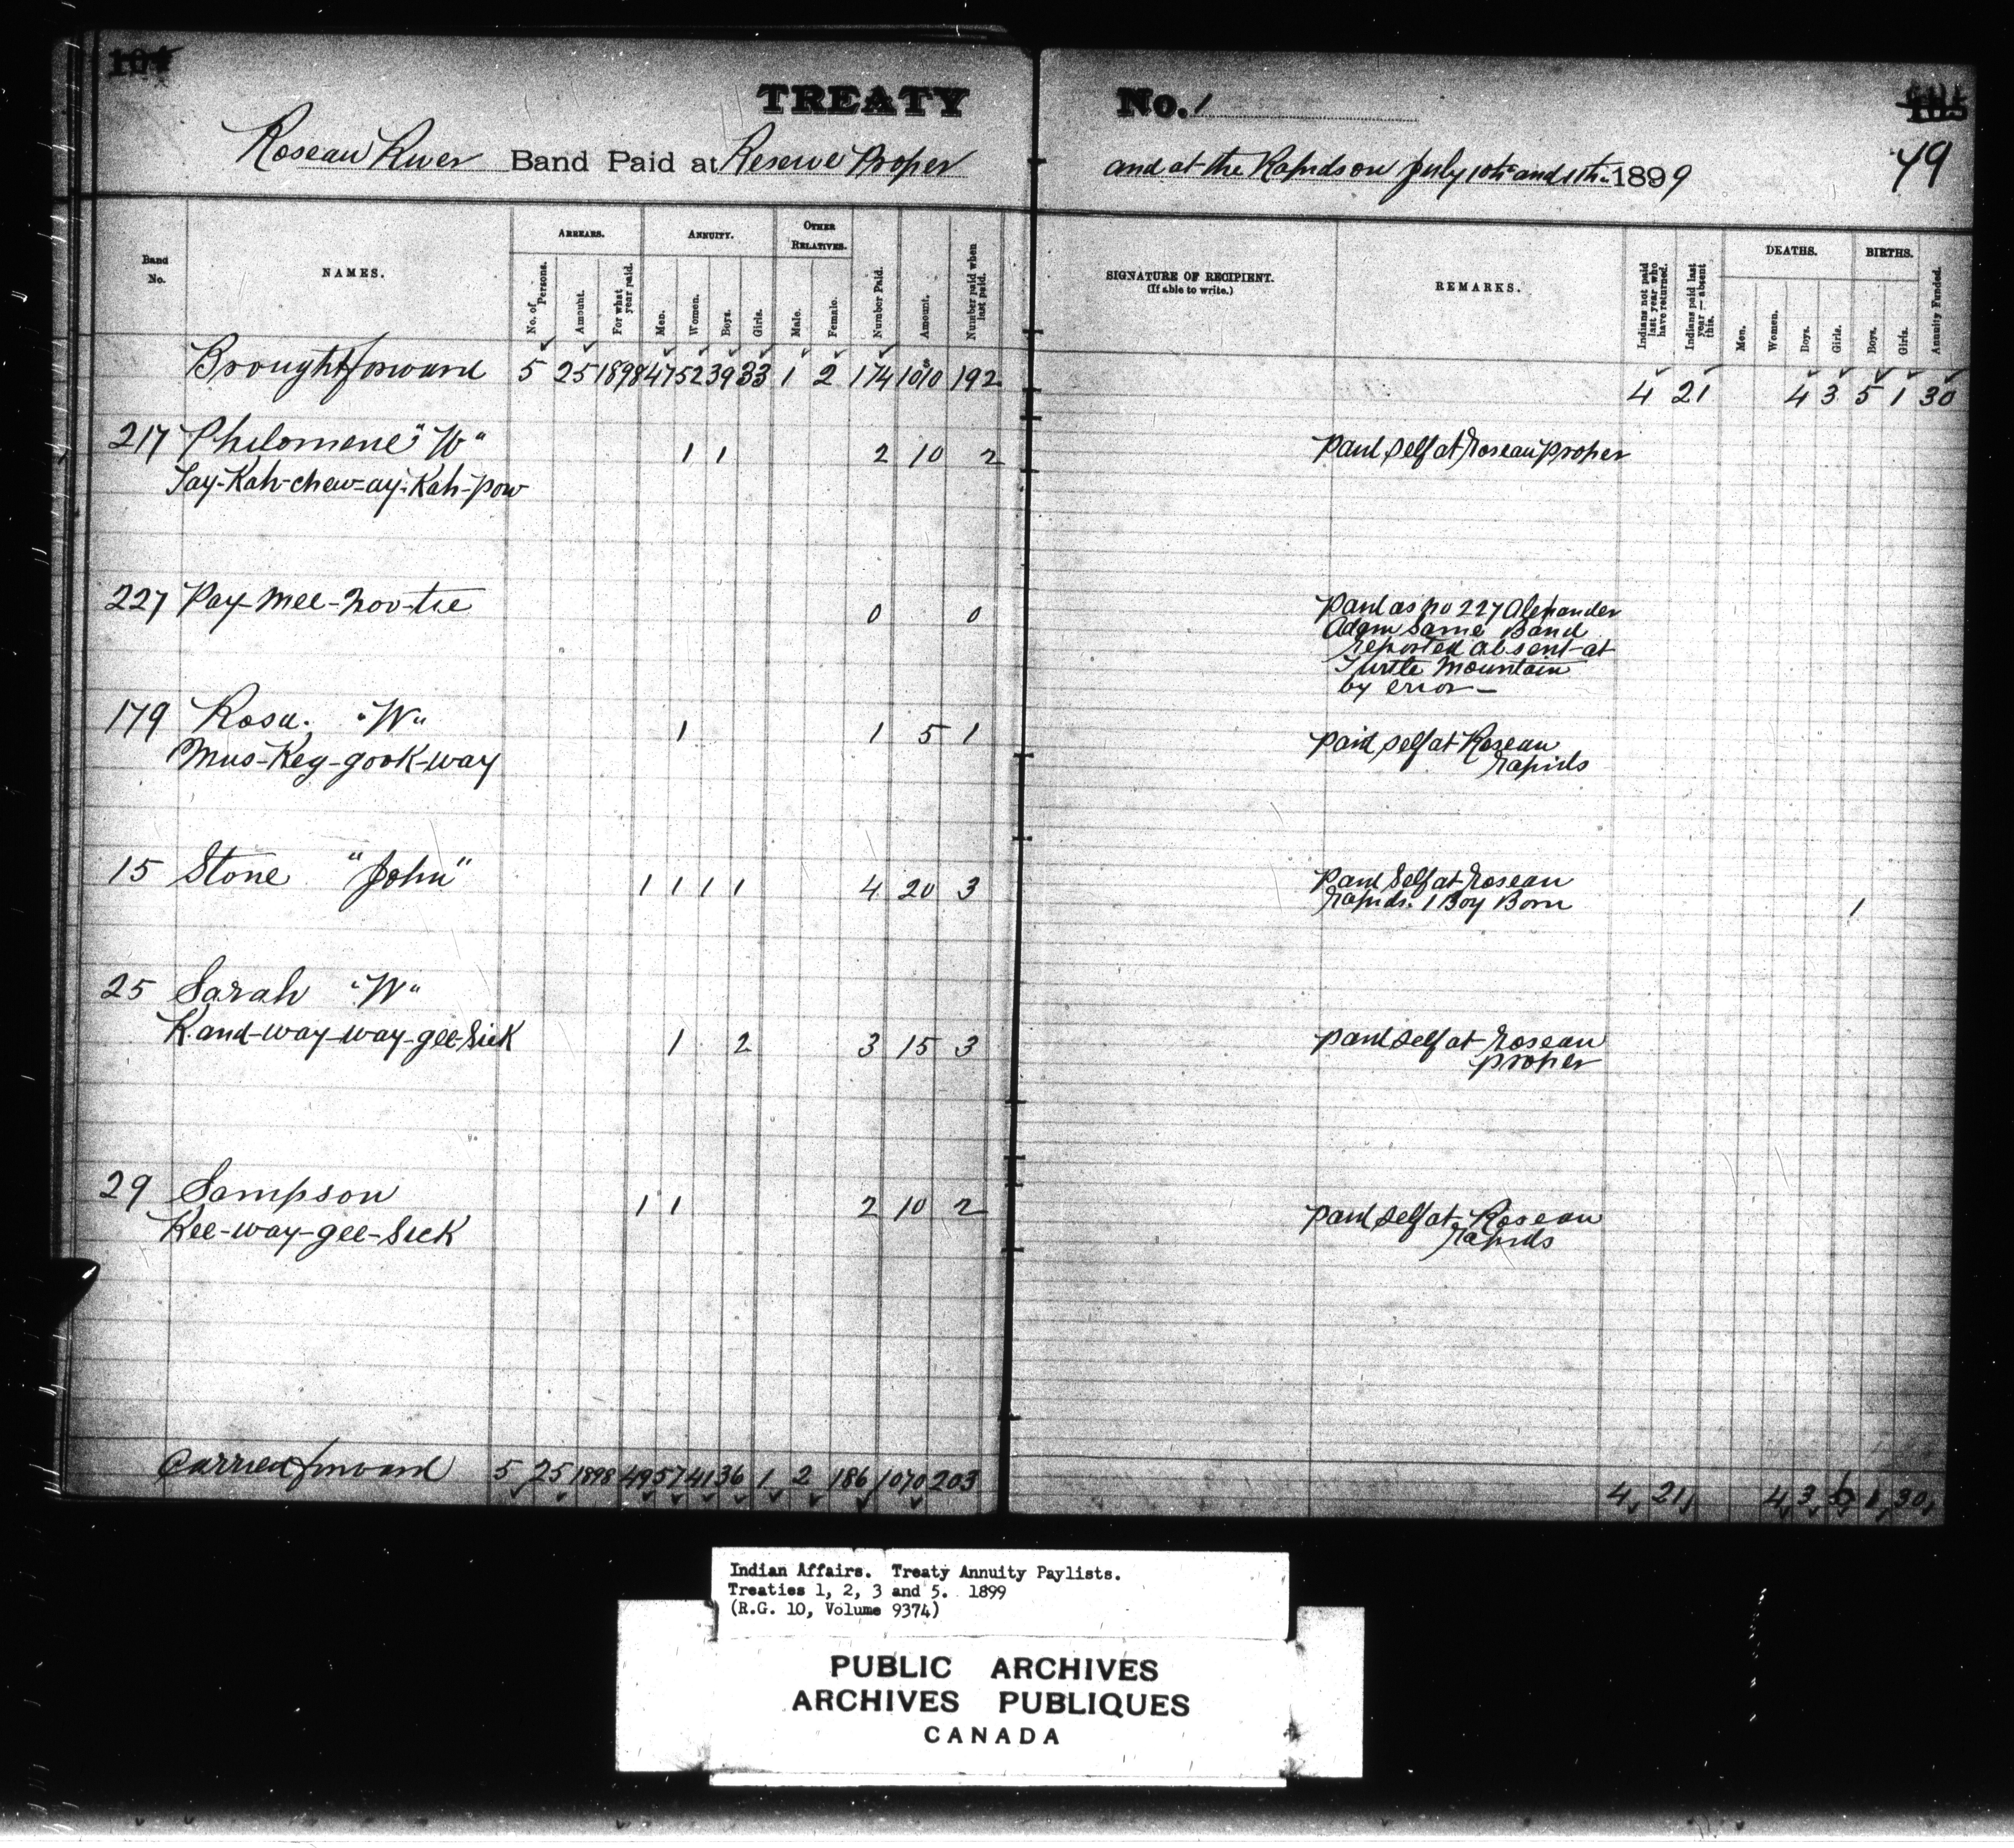 TREATY No. 1
49
Roseau River Band Paid at Reserve Proper and at the Rapids on July 10th and 11th 1899
Band No.
NAMES.
ARREARS.
No. of Persons.
Amount.
For what year paid.
ANNUITY.
Men.
Women.
Boys.
Girls.
OTHER RELATIVES.
Male.
Female.
Number Paid.
Amount.
Number paid when last paid.
SIGNATURE OF RECIPIENT.
(If able to write.)
REMARKS.
Indians not paid last year who have returned.
Indians paid last year — absent this.
DEATHS.
Men.
Women.
Boys.
Girls.
BIRTHS.
Boys.
Girls.
Annuity Funded.
Brought forward 5 25 1898 47 52 39 33 1 2 174 1010 192 4 21 4 3 5 1 30
217 Philomene "W" 1 1 2 10 2 Paid self at Roseau proper
Jay-Kah-chew-ay-Kah-pow
227 Pay-mee-noo-tie 0 0 Paid as no 227 Alexander
Adam same Band
reported absent at
Turtle Mountain
by error —
179 Rosa. "W" 1 1 5 1 paid self at Roseau
Rapids
Mus-Keg-gook-way
15 Stone "John" 1 1 1 1 4 20 3 Paid Self at Roseau
Rapids. 1 Boy Born 1
25 Sarah "W"
K.and-way-way-gee-Sick 1 2 3 15 3 paid self at Roseau
proper
29 Sampson 1 1 2 10 2 paid self at Roseau
Rapids
Kee-way-gee-Sick
Carried forward 5 25 1898 49 57 41 36 1 2 186 1070 203 4 21 4 3 6 1 30
Indian Affairs. Treaty Annuity Paylists.
Treaties 1, 2, 3 and 5. 1899
(R.G. 10, Volume 9374)
PUBLIC ARCHIVES
ARCHIVES PUBLIQUES
CANADA